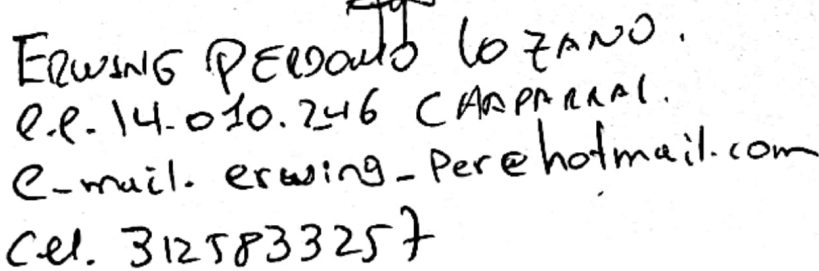 ERWING PERDOMO LOZANO.
c.c. 14.010.246 CHAPARRAL.
e-mail. erwing_Per@hotmail.com
Cel. 3125833257